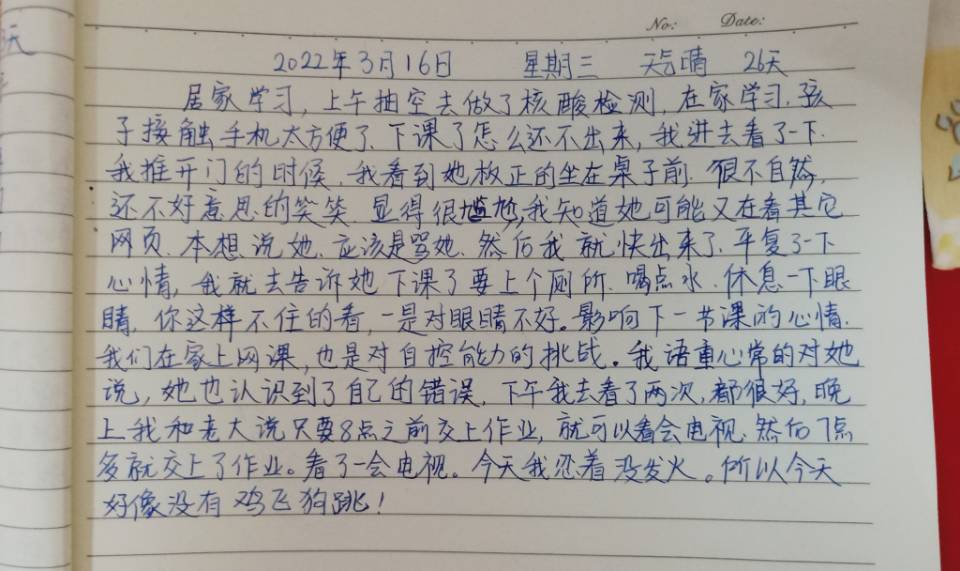 No: Date:
2022年3月16日 星期三 天气晴 26天
居家学习,上午抽空去做了核酸检测,在家学习,孩
子接触手机太方便了,下课了怎么还不出来,我进去看了一下.
我推开门的时候,我看到她板正的坐在桌子前.狠不自然,
还不好意思的笑笑.显得很尴尬,我知道她可能又在看其它
网页.本想说她.应该是骂她.然后我就快出来了.平复了一下
心情,我就去告诉她下课了要上个厕所.喝点水.休息一下眼
睛,你这样不住的看,一是对眼睛不好。影响下一节课的心情.
我们在家上网课,也是对自控能力的挑战。我语重心常的对她
说,她也认识到了自己的错误,下午我去看了两次,都很好,晚
上我和老大说只要8点之前交上作业,就可以看会电视.然后7点
多就交上了作业。看了一会电视。今天我忍着没发火。所以今天
好像没有鸡飞狗跳!